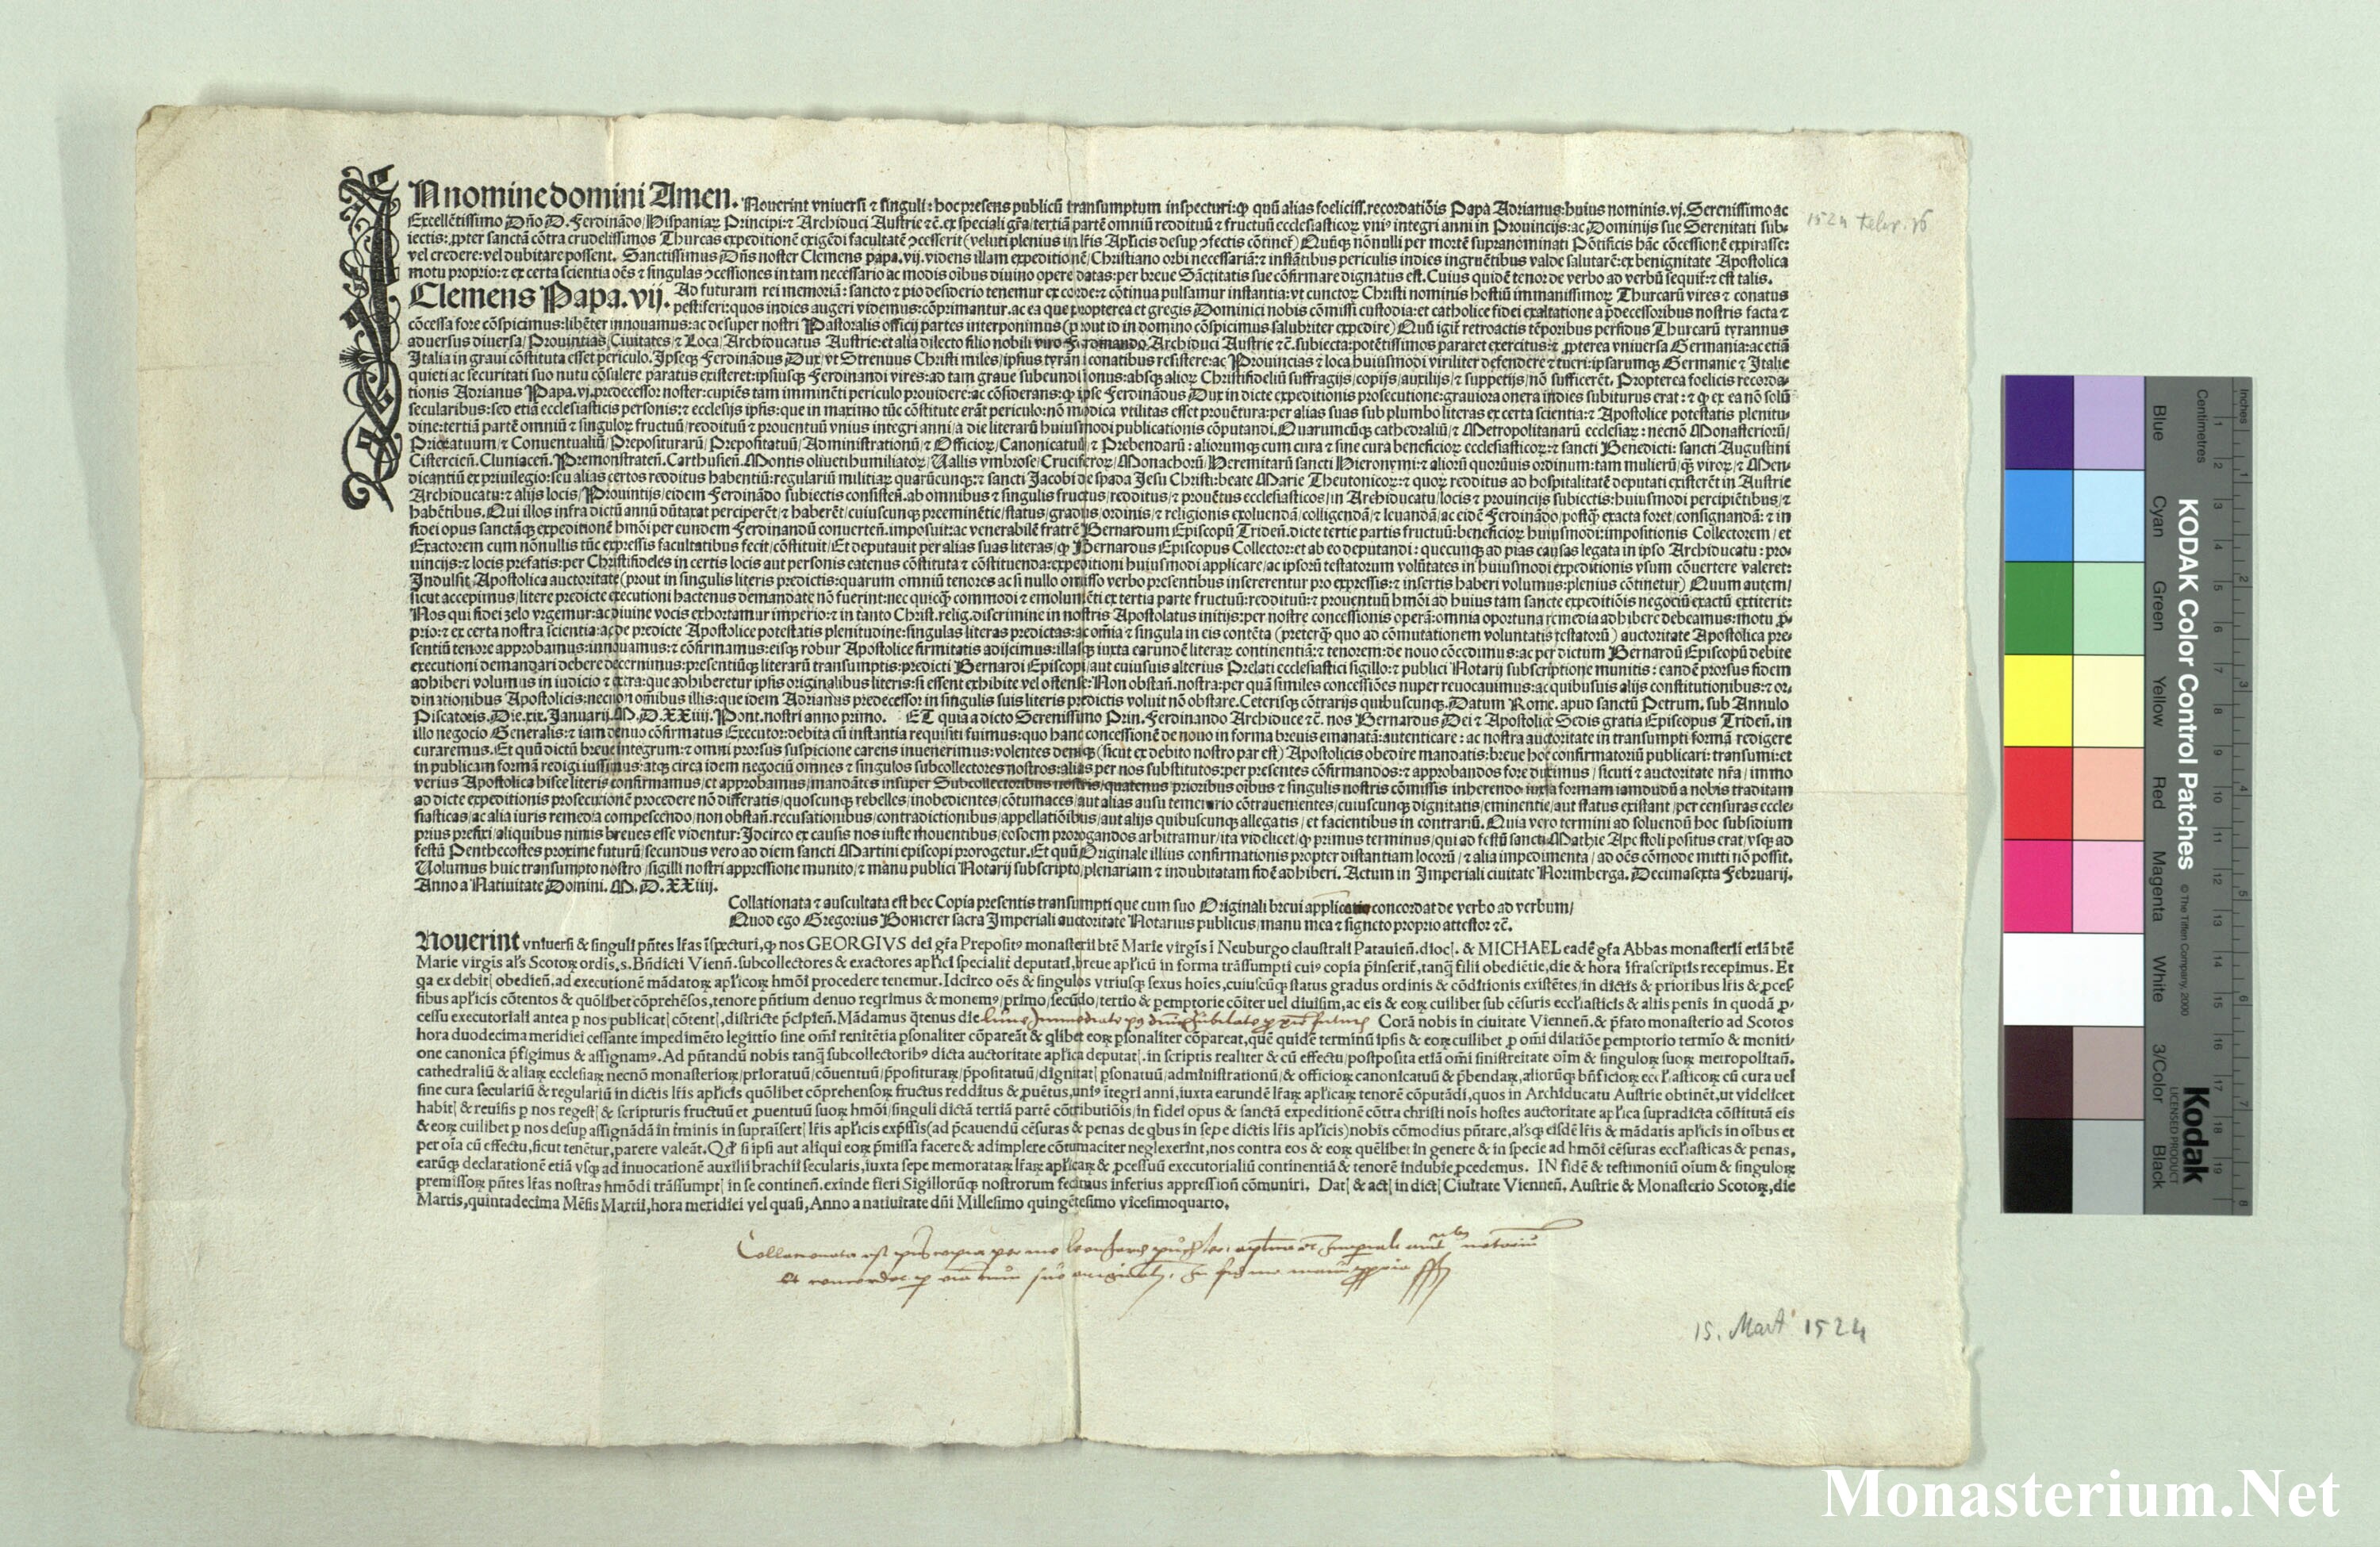 IN nomine domini Amen. Nouerint vniuersi ⁊ singuli: hoc presens publicū transumptum inspecturi: ꝙ quū alias foeliciss. recordatiōis Papa Adrianus: huius nominis. vj. Serenissimo ac
Excellētissimo Dño D. Ferdinādo / Hispaniaꝝ Principi: ⁊ Archiduci Austrie ⁊c̄. ex speciali gr̄a / tertiā partē omniū reddituū ⁊ fructuū ecclesiasticoꝝ vniꝰ integri anni in Prouincijs: ac Dominijs sue Serenitati sub-
iectis: ꝓpter sanctā cōtra crudelissimos Thurcas expeditionē exigēdi facultatē ꝯcesserit (veluti plenius in lr̄is Ap̄licis desuꝑ ꝯfectis cōtinet̄) Quūqꝫ nōnulli per mortē supranominati Pōtificis hāc cōcessionē expirasse:
vel credere: vel dubitare possent. Sanctissimus Dn̄s noster Clemens papa. vij. videns illam expeditionē / Christiano orbi necessariā: ⁊ instātibus periculis indies ingruētibus valde salutarē: ex benignitate Apostolica
motu proprio: ⁊ ex certa scientia oēs ⁊ singulas ꝯcessiones in tam necessario ac modis oībus diuino opere datas: per breue Sāctitatis sue cōfirmare dignatus est. Cuius quidē tenor de verbo ad verbū sequit̄: ⁊ est talis.
Clemens Papa. vij. Ad futuram rei memoriā: sancto ⁊ pio desiderio tenemur ex corde: ⁊ cōtinua pulsamur instantia: vt cunctoꝝ Christi nominis hostiū immanissimoꝝ Thurcarū vires ⁊ conatus
pestiferi: quos indies augeri videmus: cōprimantur. ac ea que propterea et gregis Dominici nobis cōmissi custodia: et catholice fidei exaltatione a p̄decessoribus nostris facta ⁊
cōcessa fore cōspicimus: libēter innouamus: ac desuper nostri Pastoralis officij partes interponimus (prout id in domino cōspicimus salubriter expedire) Quū igit̄ retroactis tēporibus perfidus Thurcarū tyrannus
aduersus diuersa / Prouintias / Ciuitates / ⁊ Loca / Archiducatus Austrie: et alia dilecto filio nobili viro Ferdinando Archiduci Austrie ⁊c̄. subiecta: potētissimos pararet exercitus: ⁊ ꝓpterea vniuersa Germania: ac etiā
Italia in graui cōstituta esset periculo. Ipseqꝫ Ferdinādus Dux / vt Strenuus Christi miles / ipsius tyrāni conatibus resistere: ac Prouincias ⁊ loca huiusmodi viriliter defendere ⁊ tueri: ipsarumqꝫ Germanie ⁊ Italie
quieti ac securitati suo nutu cōsulere paratus existeret: ipsiusqꝫ Ferdinandi vires: ad tam graue subeundi onus: absqꝫ alioꝝ Christifideliū suffragijs / copijs / auxilijs / ⁊ suppetijs / nō sufficerēt. Propterea foelicis recorda-
tionis Adrianus Papa. vj. predecessor noster: cupiēs tam imminēti periculo prouidere: ac cōsiderans: ꝙ ipse Ferdinādus Dux in dicte expeditionis prosecutione: grauiora onera indies subiturus erat: ⁊ ꝙ ex ea nō solū
secularibus: sed etiā ecclesiasticis personis: ⁊ ecclesijs ipsis: que in maximo tūc cōstitute erāt periculo: nō modica vtilitas esset prouētura: per alias suas sub plumbo literas ex certa scientia: ⁊ Apostolice potestatis plenitu-
dine: tertiā partē omniū ⁊ singuloꝝ fructuū / reddituū ⁊ prouentuū vnius integri anni / a die literarū huiusmodi publicationis cōputandi. Quarumcūqꝫ cathedraliū / ⁊ Metropolitanarū ecclesiaꝝ: necnō Monasterioꝝ /
Prioratuum / ⁊ Conuentualiū / Prepositurarū / Prepositatuū / Administrationū / ⁊ Officioꝝ / Canonicatuū / ⁊ Prebendarū: aliorumqꝫ cum cura ⁊ sine cura beneficioꝝ ecclesiasticoꝝ: ⁊ sancti Benedicti: sancti Augustini
Cistercien̄. Cluniacen̄. Premonstraten̄. Carthusien̄. Montis oliueti humiliatoꝝ / Vallis vmbrose / Cruciferoꝝ / Monachorū / Heremitarū sancti Hieronymi: ⁊ aliorū quorūuis ordinum: tam mulierū / ꝙ̄ viroꝝ / ⁊ Men-
dicantiū ex priuilegio: seu alias certos redditus habentiū: regulariū militiaꝝ quarūcunqꝫ: ⁊ sancti Jacobi de spada Jesu Christi: beate Marie Theutonicoꝝ: ⁊ quoꝝ redditus ad hospitalitatē deputati existerēt in Austrie
Archiducatu: ⁊ alijs locis / Prouintijs / eidem Ferdinādo subiectis consisten̄. ab omnibus ⁊ singulis fructus / redditus / ⁊ prouētus ecclesiasticos / in Archiducatu / locis ⁊ prouincijs subiectis: huiusmodi percipiētibus / ⁊
habētibus. Qui illos infra dictū annū dūtaxat perciperēt / ⁊ haberēt / cuiuscunqꝫ preeminētie / status / gradus / ordinis / ⁊ religionis exoluendā / colligendā / ⁊ leuandā / ac eidē Ferdinādo / postꝙ̄ exacta foret / consignandā: ⁊ in
fidei opus sanctāqꝫ expeditionē hmōi per eundem Ferdinandū conuerten̄. imposuit: ac venerabilē fratrē Bernardum Episcopū Triden̄. dicte tertie partis fructuū: beneficioꝝ huiusmodi: impositionis Collectorem / et
Exactorem cum nōnullis tūc expressis facultatibus fecit / cōstituit / Et deputauit per alias suas literas / ꝙ Bernardus Episcopus Collector: et ab eo deputandi: quecunqꝫ ad pias causas legata in ipso Archiducatu: pro-
uincijs: ⁊ locis prefatis: per Christifideles in certis locis aut personis eatenus cōstituta ⁊ cōstituenda: expeditioni huiusmodi applicare / ac ipsorū testatorum volūtates in huiusmodi expeditionis vsum cōuertere valeret:
Indulsit / Apostolica auctoritate (prout in singulis literis predictis: quarum omniū tenores ac si nullo omisso verbo presentibus insererentur pro expressis: ⁊ insertis haberi volumus: plenius cōtinetur) Quum autem /
sicut accepimus / litere predicte executioni hactenus demandate nō fuerint: nec quicꝙ̄ commodi ⁊ emolumēti ex tertia parte fructuū: reddituū: ⁊ prouentuū hmōi ad huius tam sancte expeditiōis negociū exactū extiterit:
Nos qui fidei zelo vrgemur: ac diuine vocis exhortamur imperio: ⁊ in tanto Christ. relig. discrimine in nostris Apostolatus initijs: per nostre concessionis operā: omnia oportuna remedia adhibere debeamus: motu ꝓ-
prio: ⁊ ex certa nostra scientia: ac de predicte Apostolice potestatis plenitudine: singulas literas predictas: ac omīa ⁊ singula in eis contēta (preterꝙ̄ quo ad cōmutationem voluntatis testatorū) auctoritate Apostolica pre-
sentiū tenore approbamus: innouamus: ⁊ cōfirmamus: eisqꝫ robur Apostolice firmitatis adijcimus: illasqꝫ iuxta earundē literaꝝ continentiā: ⁊ tenorem: de nouo cōcedimus: ac per dictum Bernardū Episcopū debite
executioni demandari debere decernimus: presentiūqꝫ literarū transumptis: predicti Bernardi Episcopi / aut cuiusuis alterius Prelati ecclesiastici sigillo: ⁊ publici Notarij subscriptione munitis: eandē prorsus fidem
adhiberi volumus in iudicio ⁊ extra: que adhiberetur ipsis originalibus literis: si essent exhibite vel ostense: Non obstan̄. nostra: per quā similes concessiōes nuper reuocauimus: ac quibusuis alijs constitutionibus: ⁊ or-
dinationibus Apostolicis: necnon omībus illis: que idem Adrianus predecessor in singulis suis literis predictis voluit nō obstare. Ceterisqꝫ cōtrarijs quibuscunqꝫ. Datum Rome. apud sanctū Petrum. sub Annulo
Piscatoris. Die. xix. Januarij. M. D. XXiiij. Pont. nostri anno primo. ET quia a dicto Serenissimo Prin. Ferdinando Archiduce ⁊c̄. nos Bernardus Dei ⁊ Apostolice Sedis gratia Episcopus Triden̄. in
illo negocio Generalis: ⁊ iam denuo cōfirmatus Executor: debita cū instantia requisiti fuimus: quo hanc concessionē de nouo in forma breuis emanatā: autenticare: ac nostra auctoritate in transumpti formā redigere
curaremus. Et quū dictū breue integrum: ⁊ omni prorsus suspicione carens inuenerimus: volentes deniqꝫ (sicut ex debito nostro par est) Apostolicis obedire mandatis: breue hoc confirmatoriū publicari: transumi: et
in publicam formā redigi iussimus: atqꝫ circa idem negociū omnes ⁊ singulos subcollectores nostros: alias per nos substitutos: per presentes cōfirmandos: ⁊ approbandos fore duximus / sicuti ⁊ auctoritate nr̄a / immo
verius Apostolica hisce literis confirmamus / et approbamus / mandātes insuper Subcollectoribus nostris / quatenus / prioribus oībus ⁊ singulis nostris cōmissis inherendo iuxta formam iamdudū a nobis traditam
ad dicte expeditionis prosecutionē procedere nō differatis / quoscunqꝫ rebelles / inobedientes / cōtumaces / aut alias ausu temerario cōtrauenientes / cuiuscunqꝫ dignitatis / eminentie / aut status existant / per censuras eccle-
siasticas / ac alia iuris remedia compescendo / non obstan̄. recusationibus / contradictionibus / appellatiōibus / aut alijs quibuscunqꝫ allegatis / et facientibus in contrariū. Quia vero termini ad soluendū hoc subsidium
prius prefixi / aliquibus nimis breues esse videntur: Idcirco ex causis nos iuste mouentibus / eosdem prorogandos arbitramur / ita videlicet / ꝙ primus terminus / qui ad festū sancti Mathie Apostoli positus erat / vsqꝫ ad
festū Penthecostes proxime futurū / secundus vero ad diem sancti Martini episcopi prorogetur. Et quū Originale illius confirmationis propter distantiam locorū / ⁊ alia impedimenta / ad oēs cōmode mitti nō possit.
Volumus huic transumpto nostro / sigilli nostri appressione munito / ⁊ manu publici Notarij subscripto / plenariam ⁊ indubitatam fidē adhiberi. Actum in Imperiali ciuitate Norimberga. Decimasexta Februarij.
Anno a Natiuitate Domini. M. D. XXiiij.
Collationata ⁊ auscultata est hec Copia presentis transumpti que cum suo Originali breui concordat de verbo ad verbum /
Quod ego Gregorius Bomerer sacra Imperiali auctoritate Notarius publicus / manu mea ⁊ signeto proprio attestor ⁊c̄.
Nouerint vniuersi & singuli pn̄tes lr̄as īspecturi, ꝙ nos GEORGIVS dei gr̄a Prepositꝰ monasterii btē Marie virgīs ī Neuburgo claustrali Patauien̄. dioc. & MICHAEL eadē gr̄a Abbas monasterii etiā btē
Marie virgīs al's Scotoꝝ ordīs. s. Bn̄dicti Vienn̄. subcollectores & exactores ap̄lici specialit̄ deputati, breue ap̄licū in forma trāssumpti cuiꝰ copia p̄inserit̄, tanꝙ̄ filii obediētie, die & hora īfrascriptis recepimus. Et
qa ex debit obedien̄. ad executionē mādatoꝝ ap̄licoꝝ hmōi procedere tenemur. Idcirco oēs & singulos vtriusqꝫ sexus hoīes, cuiuscūqꝫ status gradus ordinis & cōditionis existētes / in dictis & prioribus lr̄is & ꝓces-
sibus ap̄licis cōtentos & quōlibet cōprehēsos, tenore pn̄tium denuo reqrimus & monemꝰ / primo / secūdo / tertio & ꝑemptorie cōiter uel diuisim, ac eis & eoꝝ cuilibet sub cēsuris eccl'iasticis & aliis penis in quodā ꝓ-
cessu executoriali antea ꝑ nos publicat cōtent, districte p̄cipien̄. Mādamus q̄tenus die lune Immediate Corā nobis in ciuitate Viennen̄. & p̄fato monasterio ad Scotos
hora duodecima meridiei cessante impedimēto legittio sine om̄i renitētia ꝑsonaliter cōpareāt & qlibet eoꝝ ꝑsonaliter cōpareat, quē quidē terminū ipsis & eoꝝ cuilibet ꝓ om̄i dilatiōe ꝑemptorio termīo & moniti-
one canonica p̄figimus & assignamꝰ. Ad pn̄tandū nobis tanꝙ̄ subcollectoribꝰ dicta auctoritate ap̄lica deputat. in scriptis realiter & cū effectu / postposita etiā om̄i sinistreitate oīm & singuloꝝ suoꝝ metropolitan̄.
cathedraliū & aliaꝝ ecclesiaꝝ necnō monasterioꝝ / prioratuū / cōuentuū / p̄posituraꝝ / p̄positatuū / dignitat ꝑsonatuū / administrationū / & officioꝝ canonicatuū & p̄bendaꝝ, aliorūqꝫ bn̄ficioꝝ eccl'asticoꝝ cū cura uel
sine cura seculariū & regulariū in dictis lr̄is ap̄licis quōlibet cōprehensoꝝ fructus redditus & ꝓuētus, uniꝰ ītegri anni, iuxta earundē lr̄aꝝ ap̄licaꝝ tenorē cōputādi, quos in Archiducatu Austrie obtinēt, ut videlicet
habit & reuisis ꝑ nos regest & scripturis fructuū et ꝓuentuū suoꝝ hmōi / singuli dictā tertiā partē cōtributiōis / in fidei opus & sanctā expeditionē cōtra christi noīs hostes auctoritate ap̄lica supradicta cōstitutā eis
& eoꝝ cuilibet ꝑ nos desuꝑ assignādā in t̄minis in supraīsert lr̄is ap̄licis exp̄ssis (ad p̄cauendū cēsuras & penas de qbus in sepe dictis lr̄is ap̄licis) nobis cōmodius pn̄tare, al'sqꝫ eisdē lr̄is & mādatis ap̄licis in oībus et
per oīa cū effectu, sicut tenētur, parere valeāt. Qd' si ipsi aut aliqui eoꝝ p̄missa facere & adimplere cōtumaciter neglexerint, nos contra eos & eoꝝ quēlibet in genere & in specie ad hmōi cēsuras eccl'iasticas & penas,
earūqꝫ declarationē etiā vsqꝫ ad inuocationē auxilii brachii secularis, iuxta sepe memorataꝝ lr̄aꝝ ap̄licaꝝ & ꝓcessuū executorialiū continentiā & tenorē indubie ꝓcedemus. IN fidē & testimoniū oīum & singuloꝝ
premissoꝝ pn̄tes lr̄as nostras hmōdi trāssumpt in se continen̄. exinde fieri Sigillorūqꝫ nostrorum fecimus inferius appression̄ cōmuniri. Dat & act in dict Ciuitate Viennen̄. Austrie & Monasterio Scotoꝝ, die
Martis, quintadecima Mēsis Martii, hora meridiei vel quasi, Anno a natiuitate dn̄i Millesimo quingētesimo vicesimoquarto.
Collacionata est pn̄s copia per me notariū
Et concordat ꝑ oīa cum suo originali, manu ꝓpria
1524 Febr. 16
15. Mart 1524
KODAK Color Control Patches
© The Tiffen Company, 2000
Kodak
LICENSED PRODUCT
Blue
Cyan
Green
Yellow
Red
Magenta
White
3/Color
Black
Centimetres
Inches
Monasterium.Net